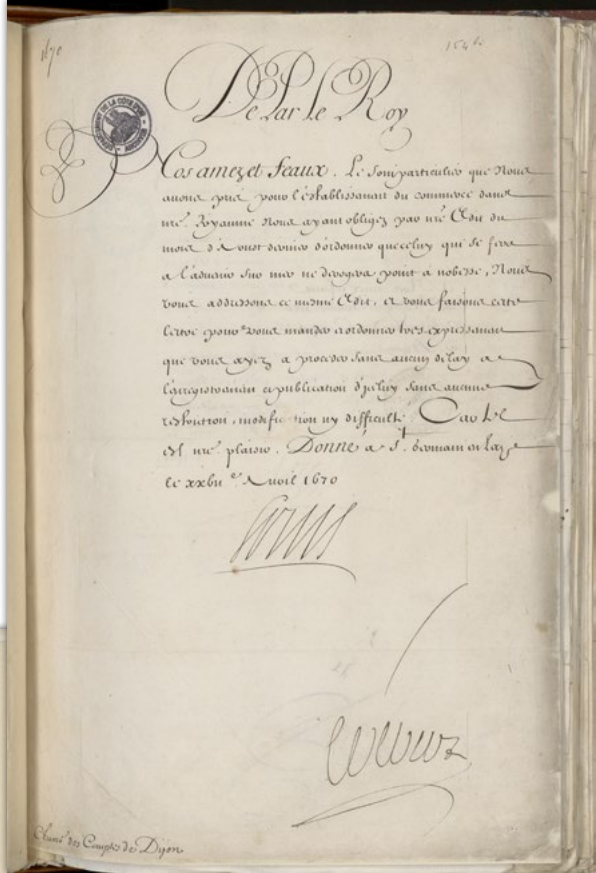 1670
154 bis
De Par le Roy
Nos amez et feaux. Le soin particulier que Nous
avons pris pour l'establissement du commerce dans
nre. Royaume Nous ayant obligez par nre Edit du
mois d'Aoust dernier d'ordonner que celuy qui se fera
a l'advenir sur mer ne derogera point a noblesse, Nous
vous addressons ce mesme Edit, et vous faisons cette
lettre pour vous mander et ordonner tres expressement
que vous ayez a proceder sans aucun delay a
l'arregistrement et publication d'jceluy sans aucune
restrinction, modification ny difficulté. Car tel
est nre. plaisir. Donné a St. Germain en Laye
le xxvii e. Avril 1670
Louis
Colbert
Chamb des Comptes de Dijon